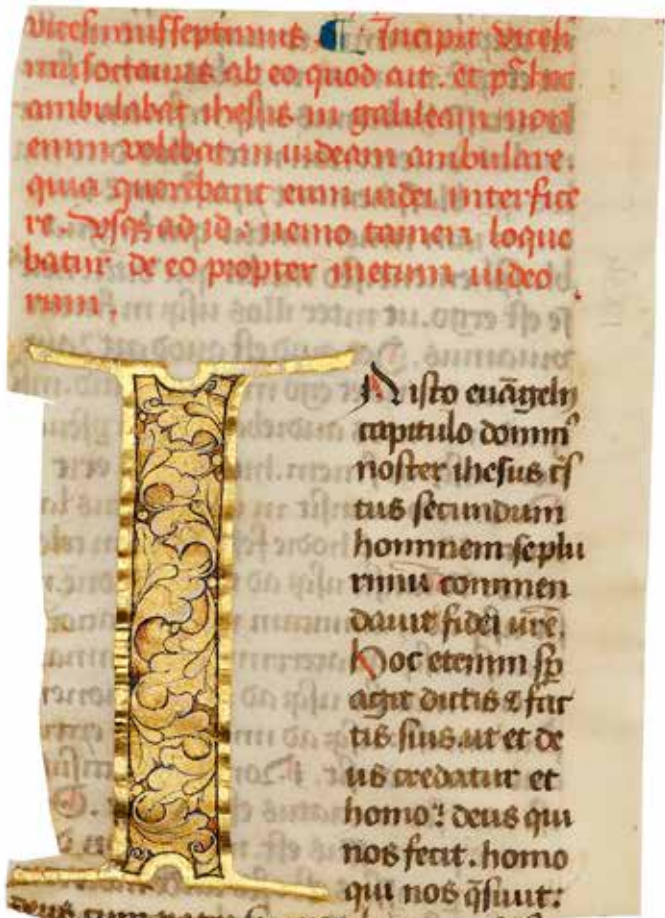 vicesimusseptimus. ¶ Incipit vicesi
musoctauus ab eo quod ait. et pͨ hec
ambulabat ihesus in galileam non
enim volebat in iudeam ambulare.
quia querebant eum iudei interfice
re. vsqʒ ad id: nemo tamen loque
batur de eo propter metum iudeo
rum.
IN isto euāgelij
capitulo domin⁹
noster ihesus cʳis
tus secundum
hominem se plu
rimū commen
dauit fidei nr̄e.
Hoc etenim sp̄
agit dictis ⁊ fac
tis suis. ut et de
us credatur et
homo: deus qui
nos fecit. homo
qui nos q̄siuit: